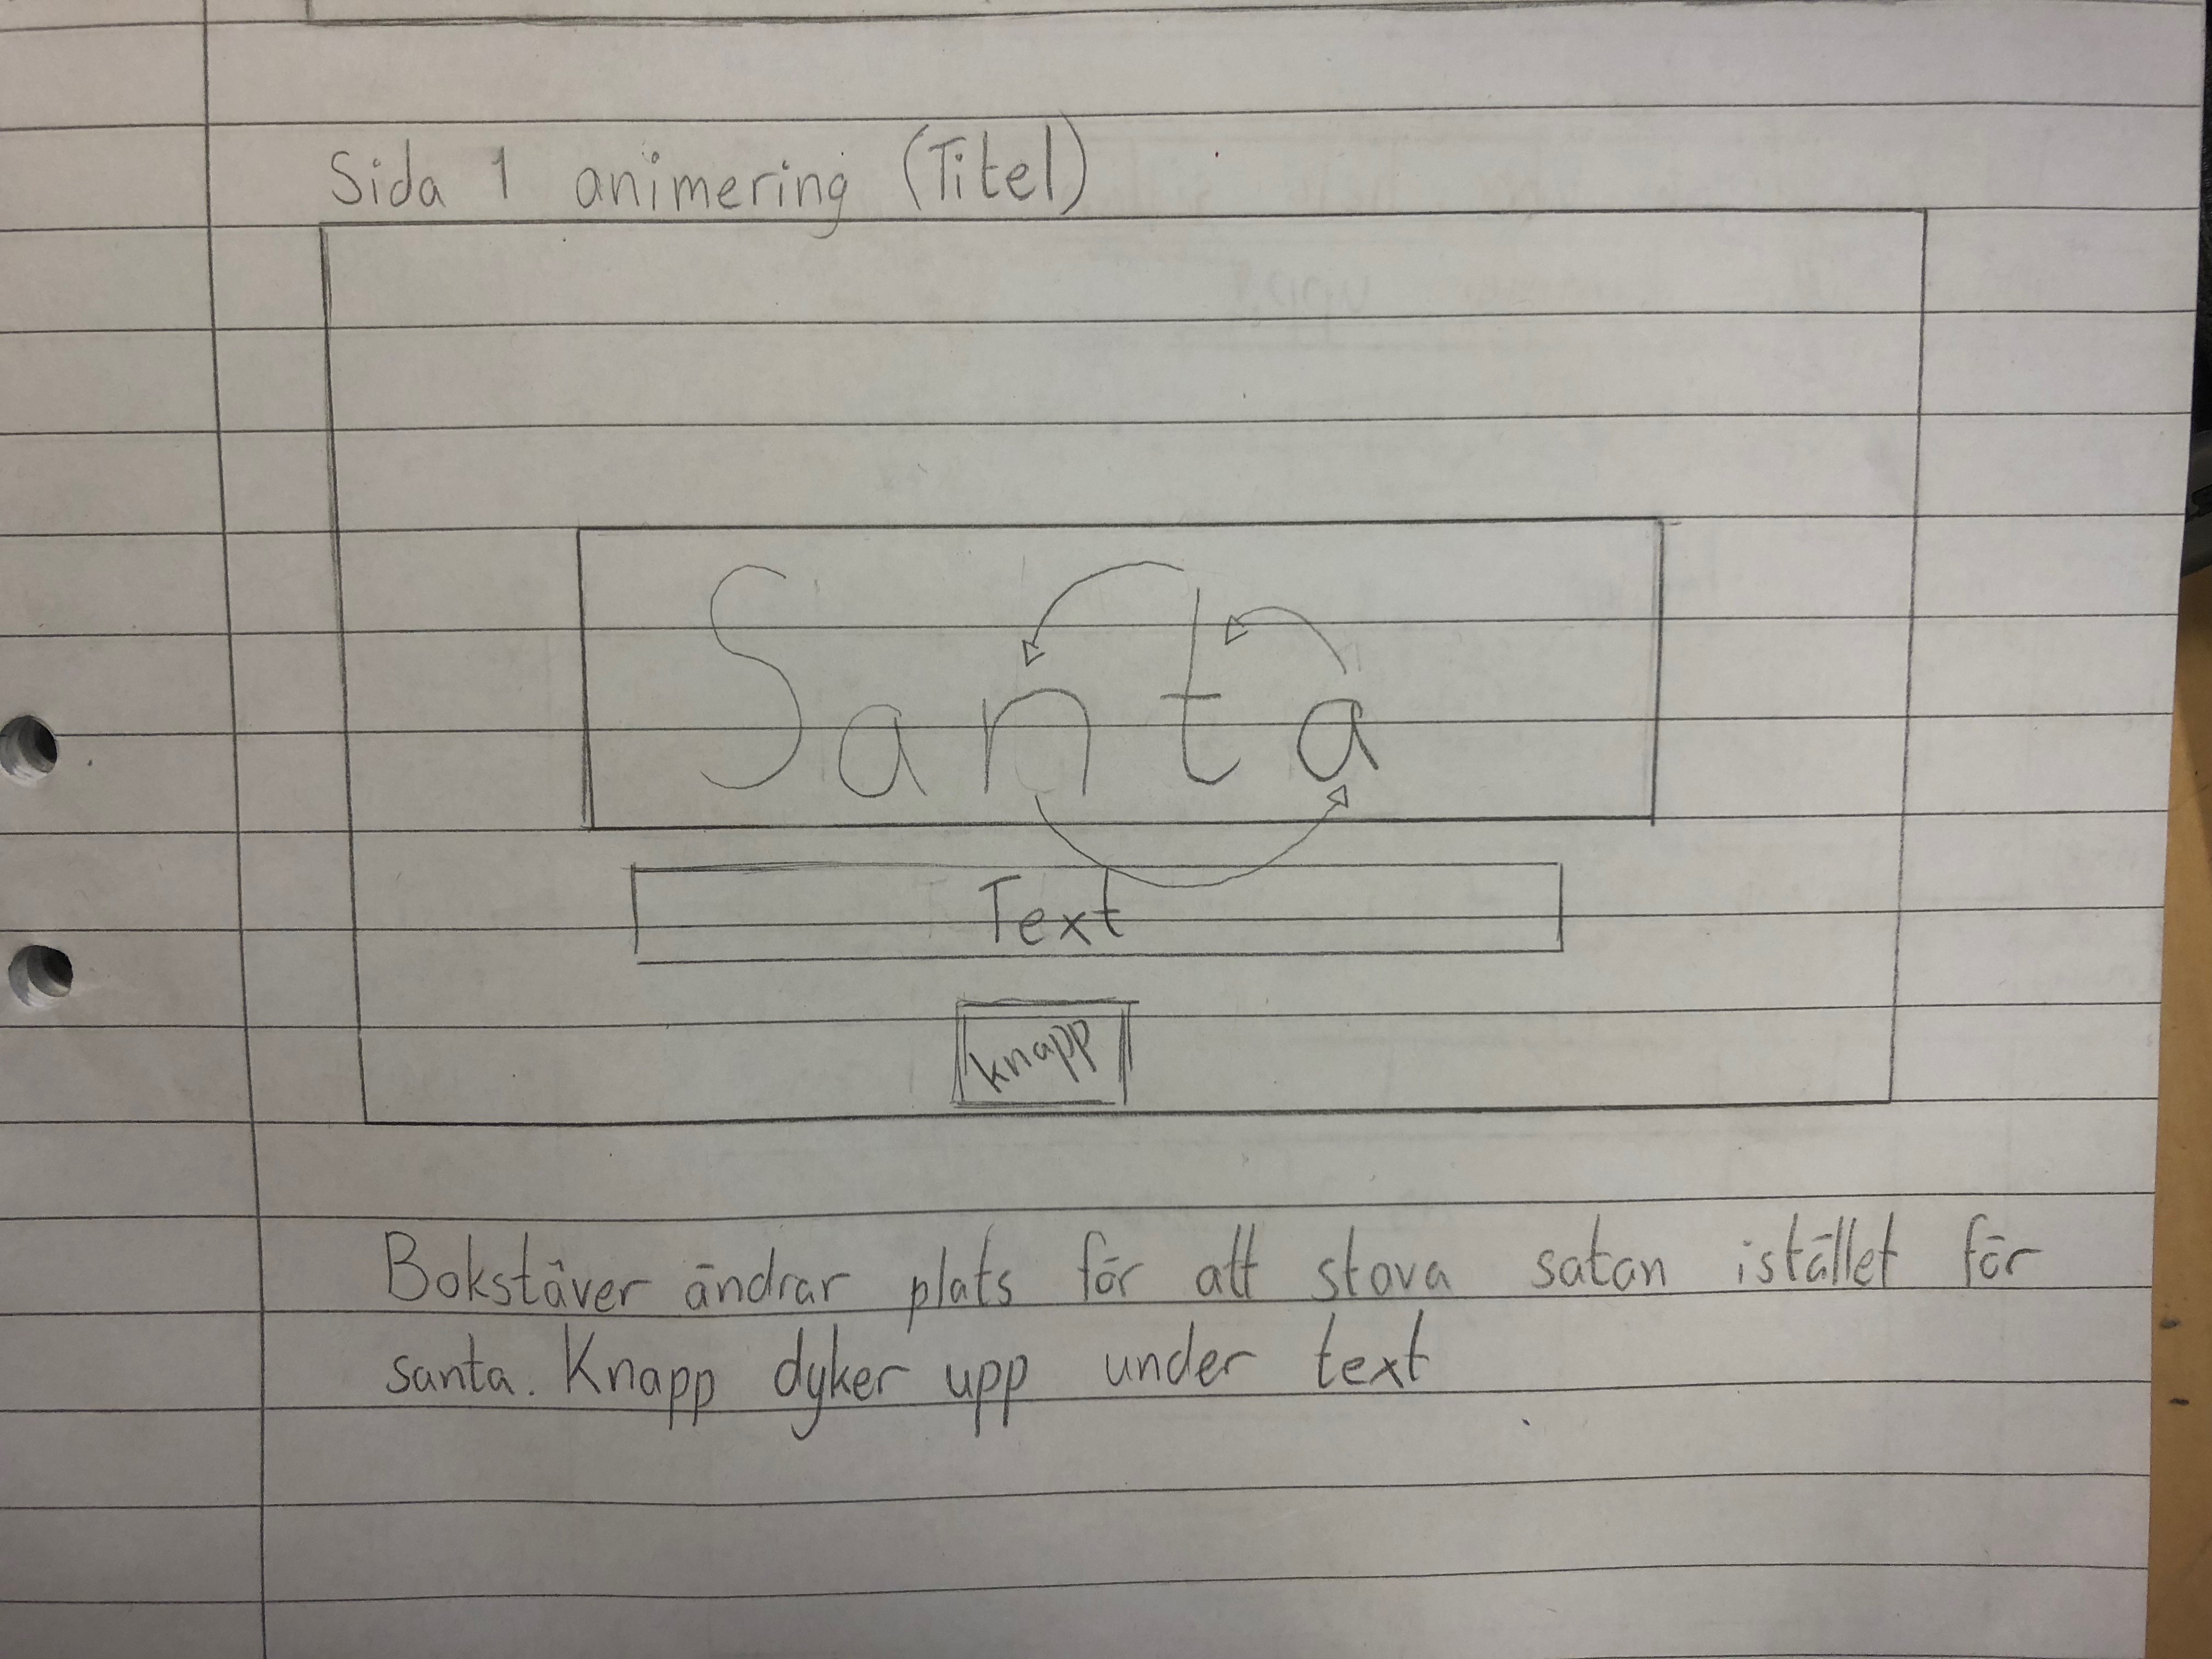 Sida 1 animering (Titel)
Santa
Text
knapp
Bokstäver ändrar plats för att stava satan istället för
santa. Knapp dyker upp under text